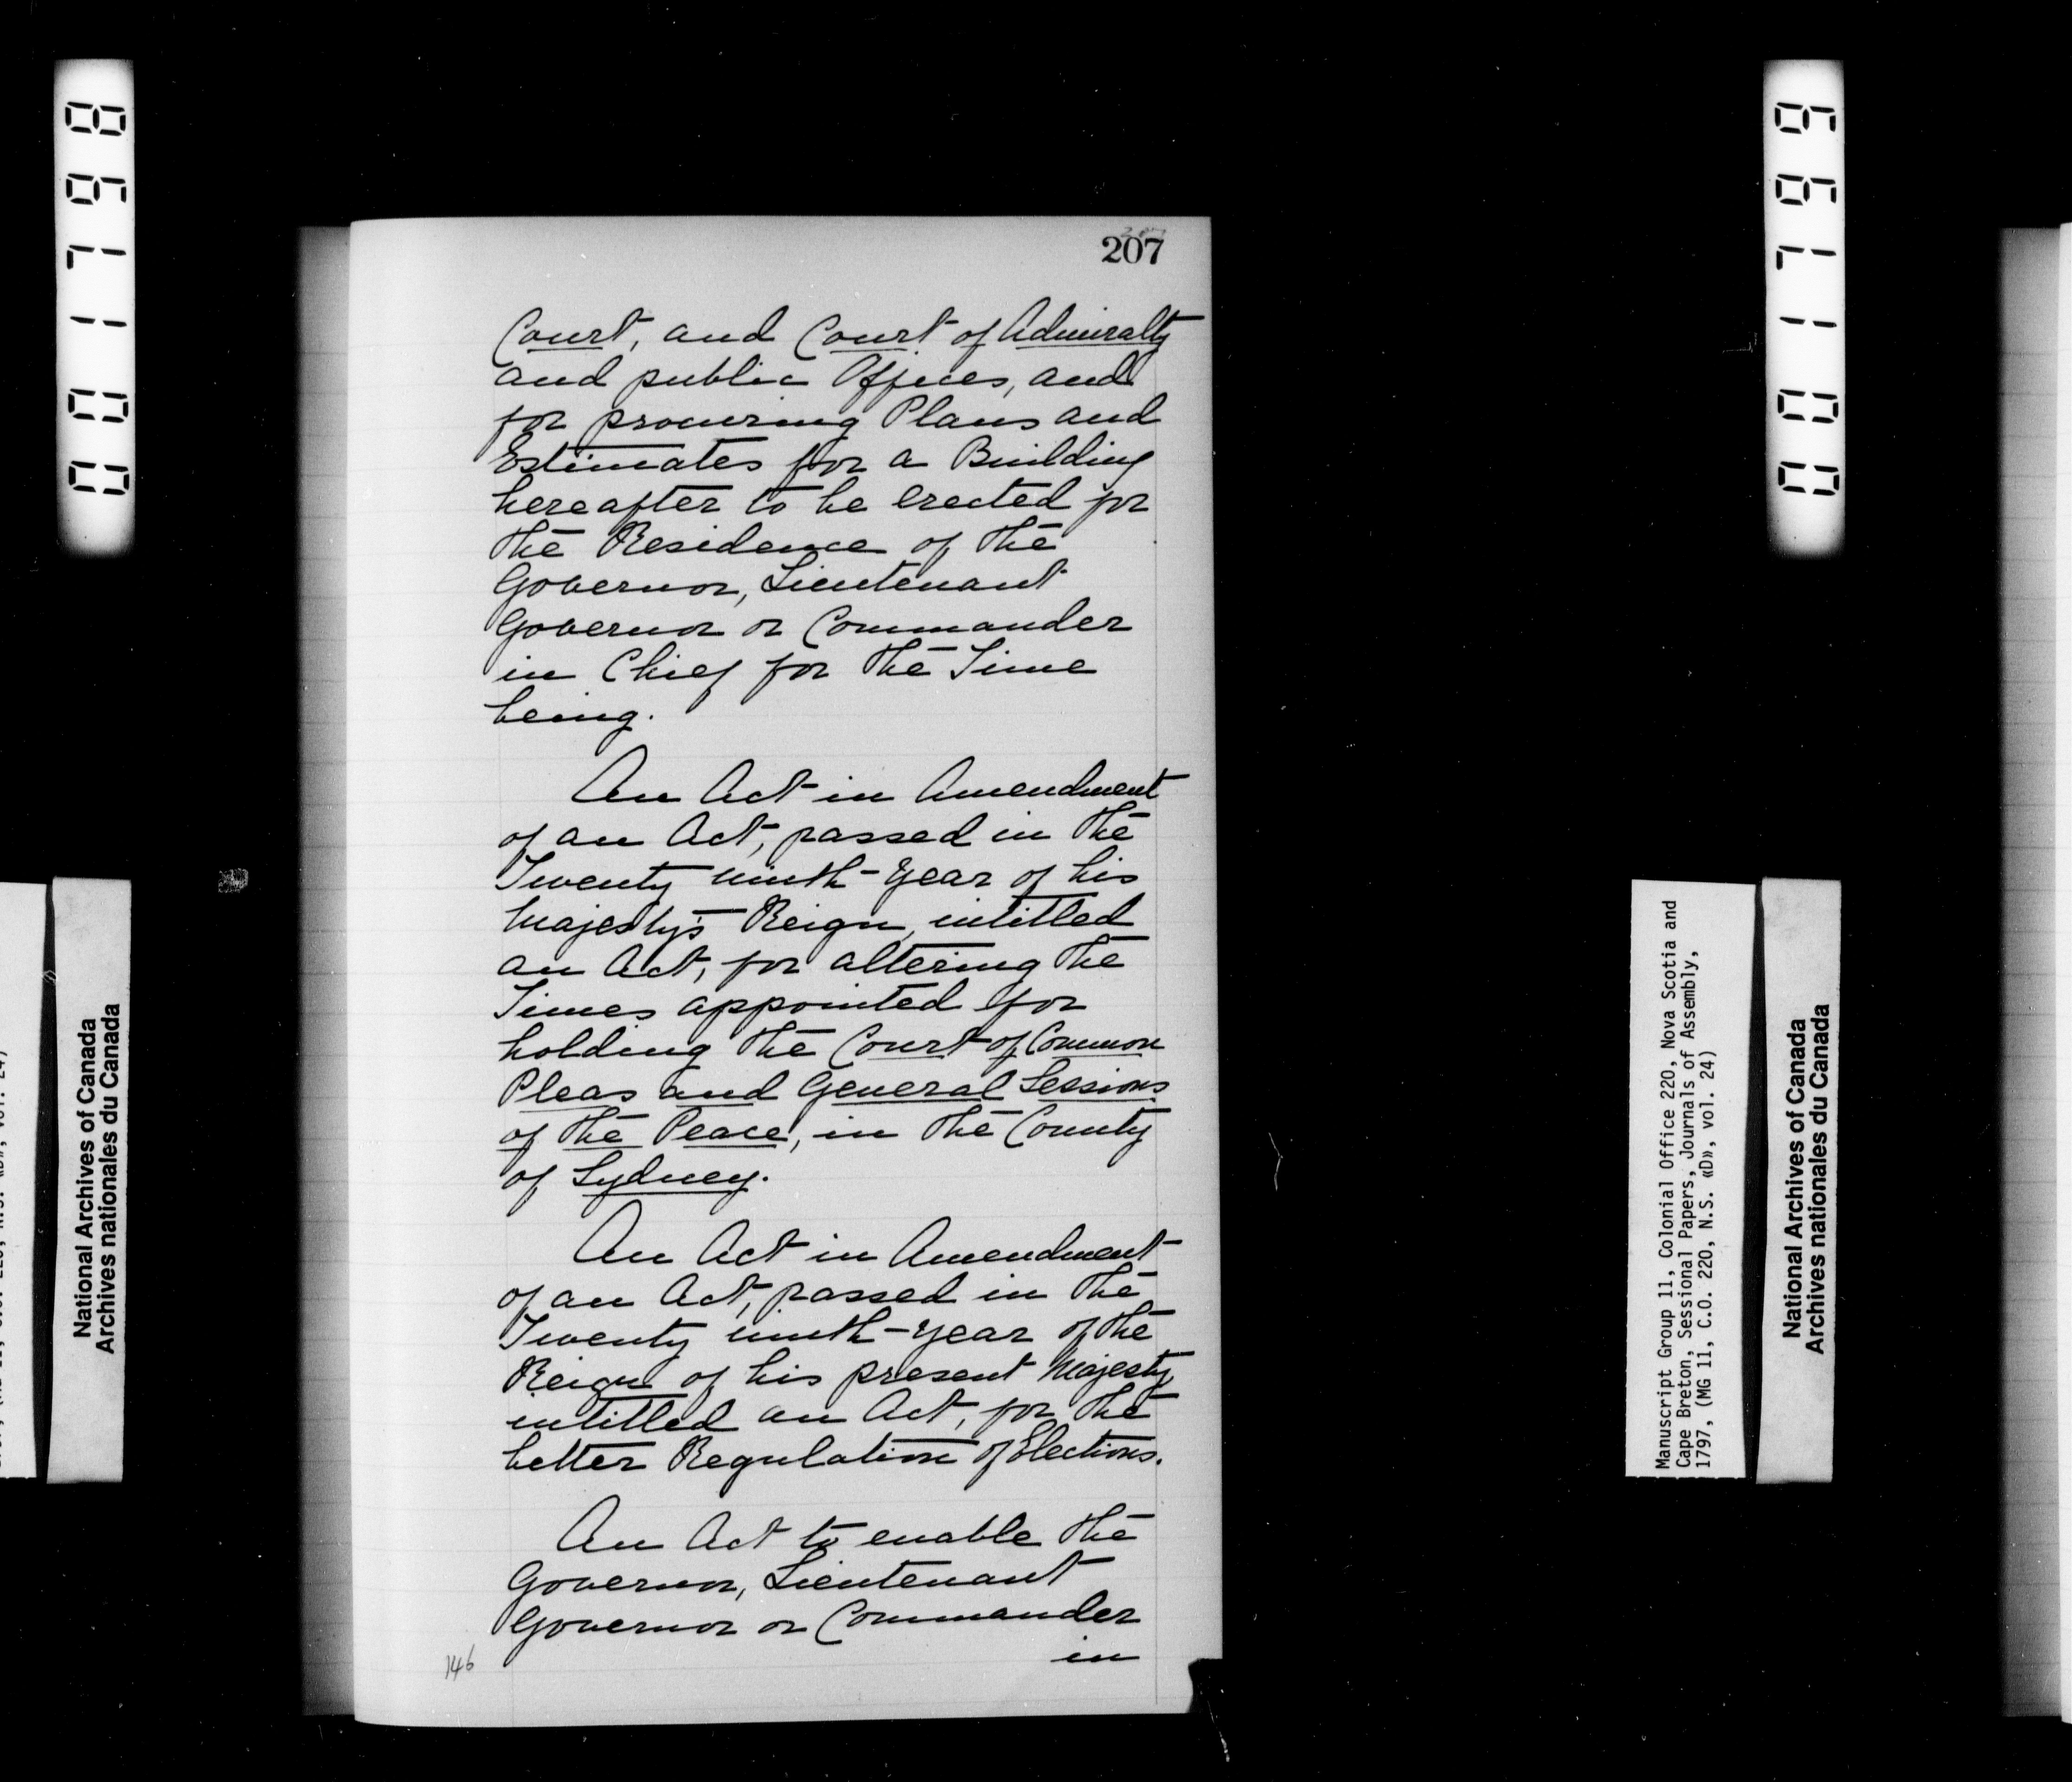 207
Court, and Court of Admiralty
and public Offices, and
for procuring Plans and
Estimates for a Building
hereafter to be erected for
the Residence of the
Governor, Lieutenant
Governor or Commander
in Chief for the Time
being.
An Act in Amendment
of an Act, passed in the
Twenty ninth-Year of his
Majesty's Reign, intitled
an Act, for altering the
Times appointed for
holding the Court of Common
Pleas and General Sessions
of the Peace, in the County
of Sydney.
An Act in Amendment
of an Act, passed in the
Twenty ninth-year of the
Reign of his present Majesty,
intitled an Act, for the
better Regulation of Elections.
An Act to enable the
Governor, Lieutenant
Governor or Commander
in
146
001798
National Archives of Canada
Archives nationales du Canada
001799
Manuscript Group 11, Colonial Office 220, Nova Scotia and
Cape Breton, Sessional Papers, Journals of Assembly,
1797, (MG 11, C.O. 220, N.S. «D», vol. 24)
National Archives of Canada
Archives nationales du Canada